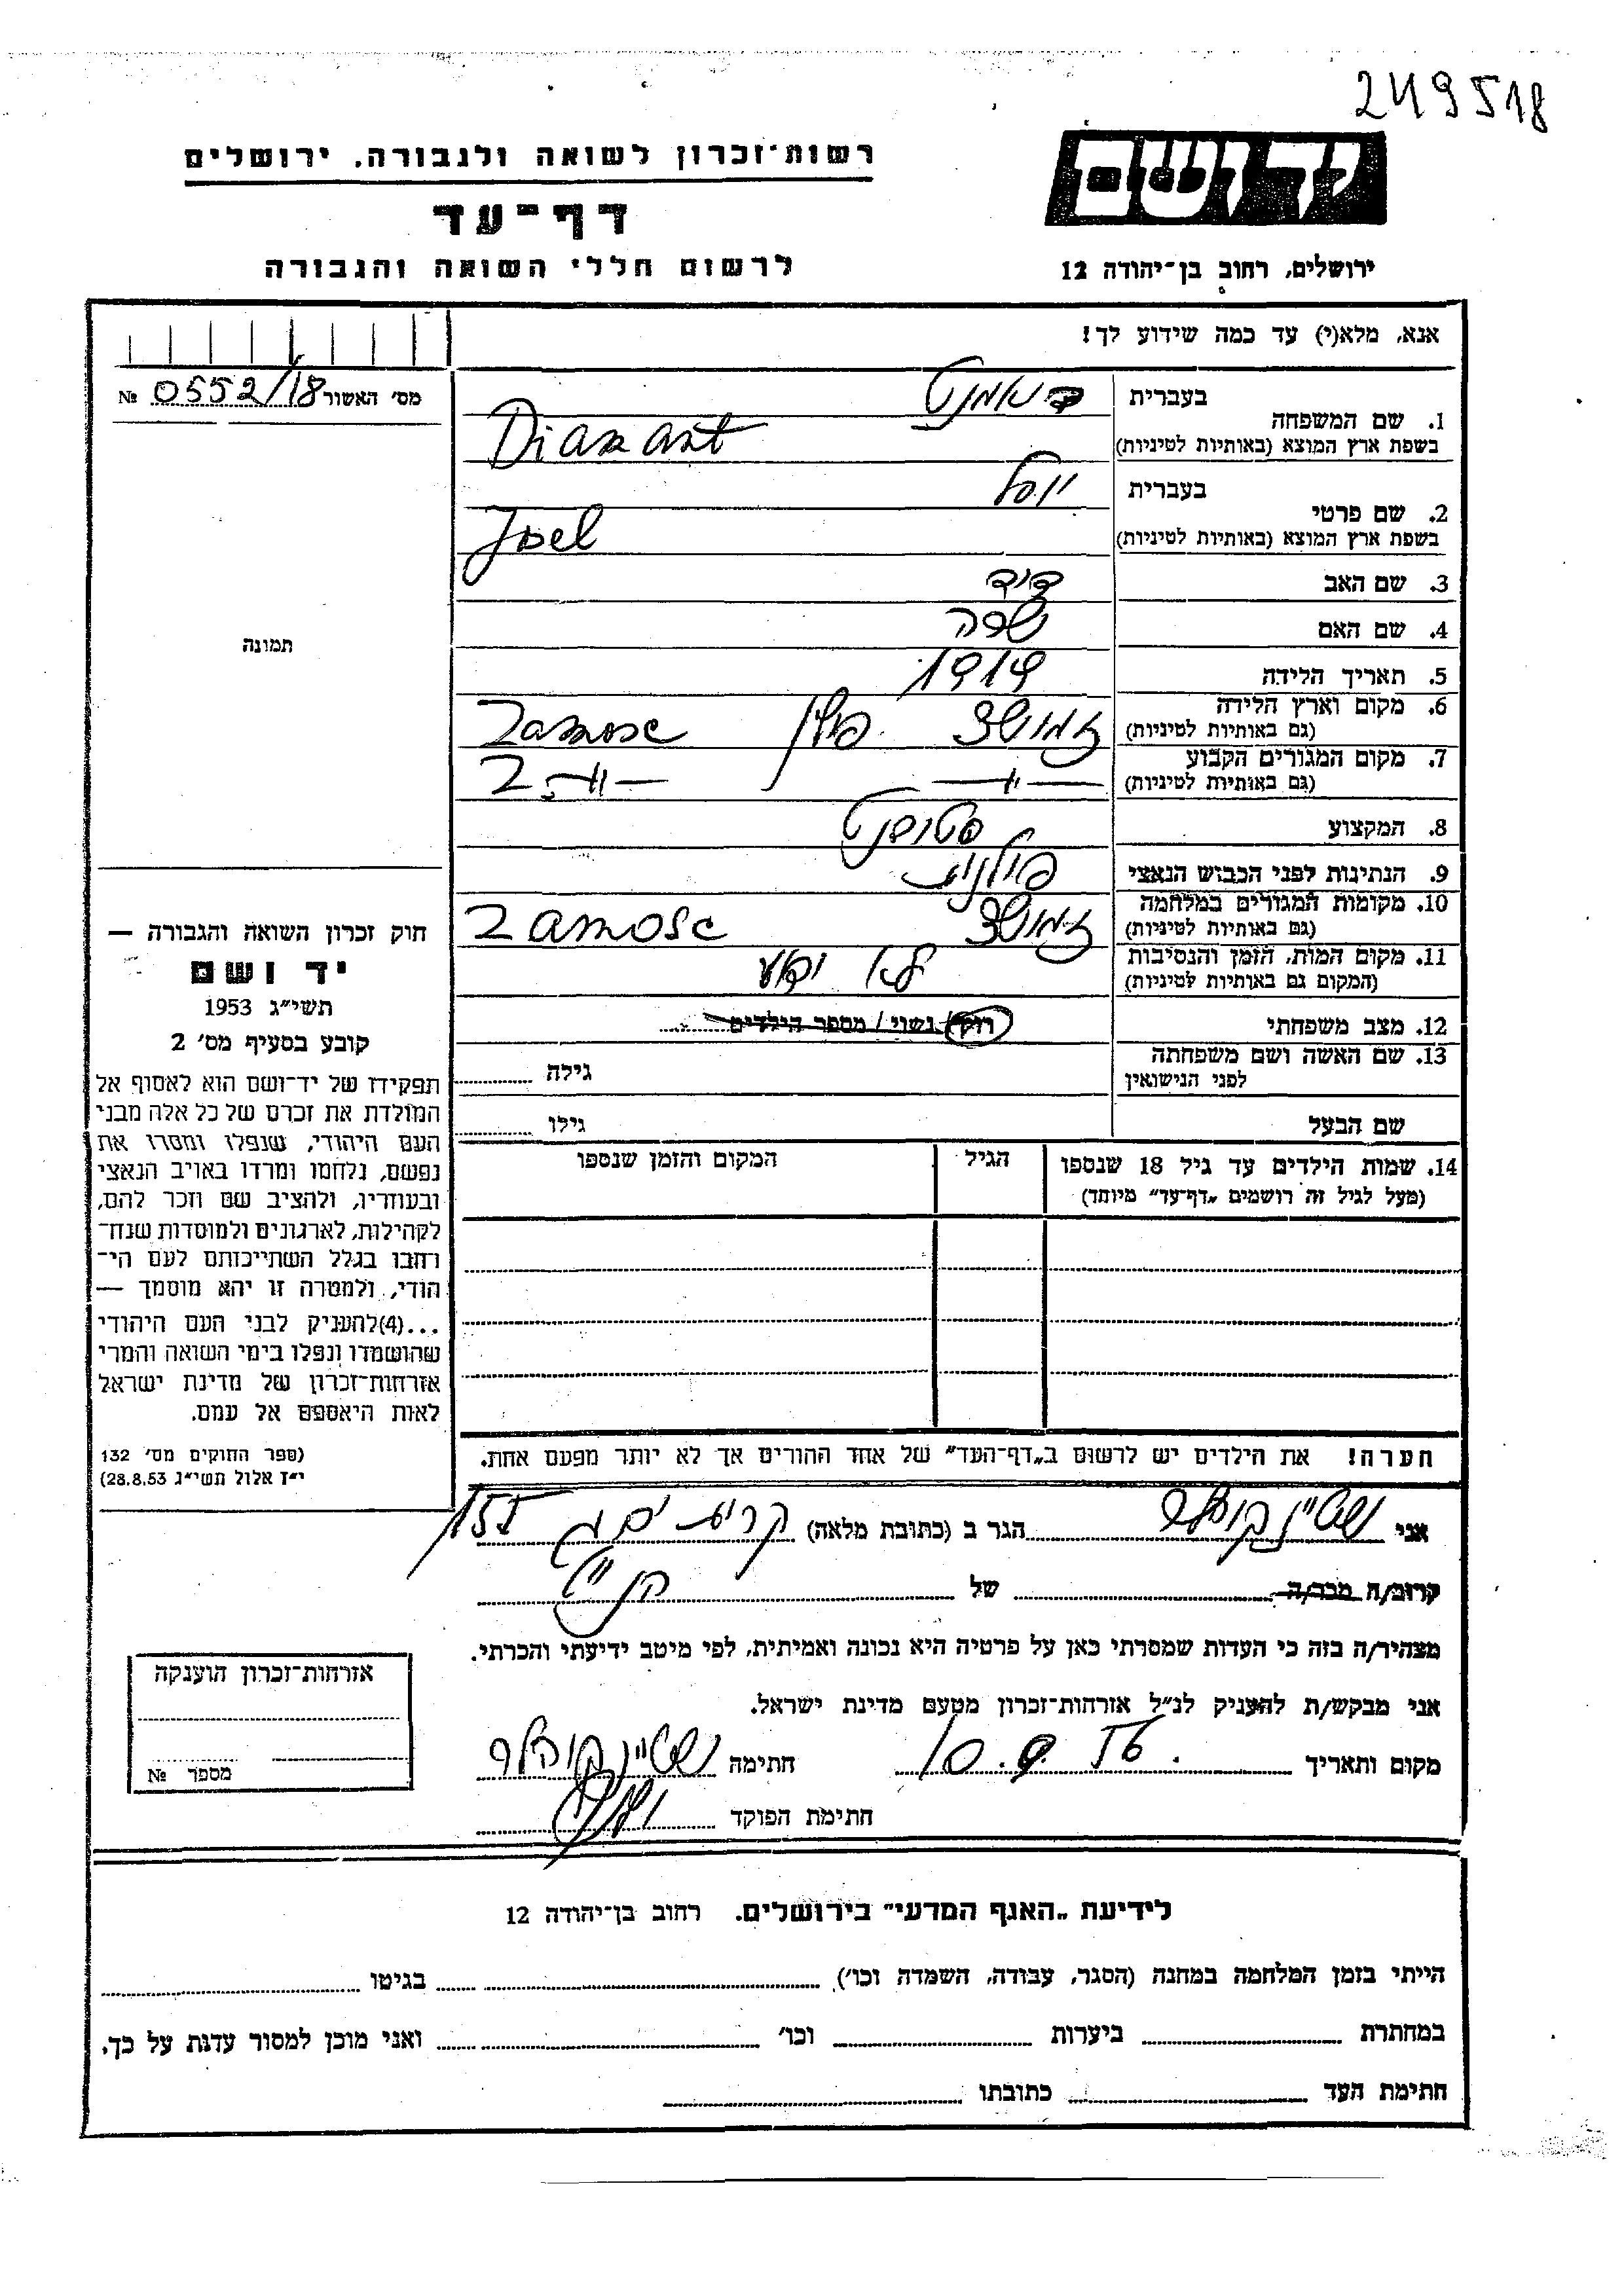 249518
רשות־זכרון לשואה ולגבורה. ירושלים
דף־עד
לרשום חללי השואה והגבורה
יד ושם
ירושלים, רחוב בן־יהודה 12
אנא, מלא(י) עד כמה שידוע לך!
מס׳ האשור 0552/18 №
תמונה
1. שם המשפחה
בעברית דיאמנט
בשפת ארץ המוצא (באותיות לטיניות) Diamant
2. שם פרטי
בעברית
בשפת ארץ המוצא (באותיות לטיניות) Joel
3. שם האב דוד
4. שם האם שרה
5. תאריך הלידה 1919
6. מקום וארץ הלידה זמושץ פולין Zamosc
(גם באותיות לטיניות)
7. מקום המגורים הקבוע — " —
(גם באותיות לטיניות)
8. המקצוע סטודנט
9. הנתינות לפני הכבוש הנאצי פולנית
10. מקומות המגורים במלחמה זמושץ Zamosc
(גם באותיות לטיניות)
11. מקום המות, הזמן והנסיבות לא ידוע
(המקום גם באותיות לטיניות)
12. מצב משפחתי רוק/ נשוי / מספר הילדים
13. שם האשה ושם משפחתה
לפני הנישואין
גילה
שם הבעל
גילו
14. שמות הילדים עד גיל 18 שנספו
(מעל לגיל זה רושמים „דף־עד” מיוחד)
הגיל
המקום והזמן שנספו
הערה! את הילדים יש לרשום ב„דף־העד” של אחד ההורים אך לא יותר מפעם אחת.
חוק זכרון השואה והגבורה —
יד ושם
תשי״ג 1953
קובע בסעיף מס׳ 2
תפקידו של יד־ושם הוא לאסוף אל
המולדת את זכרם של כל אלה מבני
העם היהודי, שנפלו ומסרו את
נפשם, נלחמו ומרדו באויב הנאצי
ובעוזריו, ולהציב שם וזכר להם,
לקהילות, לארגונים ולמוסדות שנח־
רחבו בגלל השתייכותם לעם הי־
הודי, ולמטרה זו יהא מוסמך —
...(4)להעניק לבני העם היהודי
שהושמדו ונפלו בימי השואה והמרי
אזרחות־זכרון של מדינת ישראל
לאות היאספם אל עמם.
(ספר החוקים מס׳ 132
י״ז אלול תשי״ג 28.8.53)
אני שטיין הגר ב (כתובת מלאה) קרית ים ג 155
קרוב/ה מכר/ה של
מצהיר/ה בזה כי העדות שמסרתי כאן על פרטיה היא נכונה ואמיתית, לפי מיטב ידיעתי והכרתי.
אני מבקש/ת להעניק לנ״ל אזרחות־זכרון מטעם מדינת ישראל.
מקום ותאריך חתימה שטיין
חתימת הפוקד
אזרחות־זכרון הוענקה
מספר №
לידיעת „האגף המדעי” בירושלים. רחוב בן־יהודה 12
הייתי בזמן המלחמה במחנה (הסגר, עבודה, השמדה וכו׳) בגיטו
במחתרת ביערות וכו׳ ואני מוכן למסור עדות על כך.
חתימת העד כתובתו